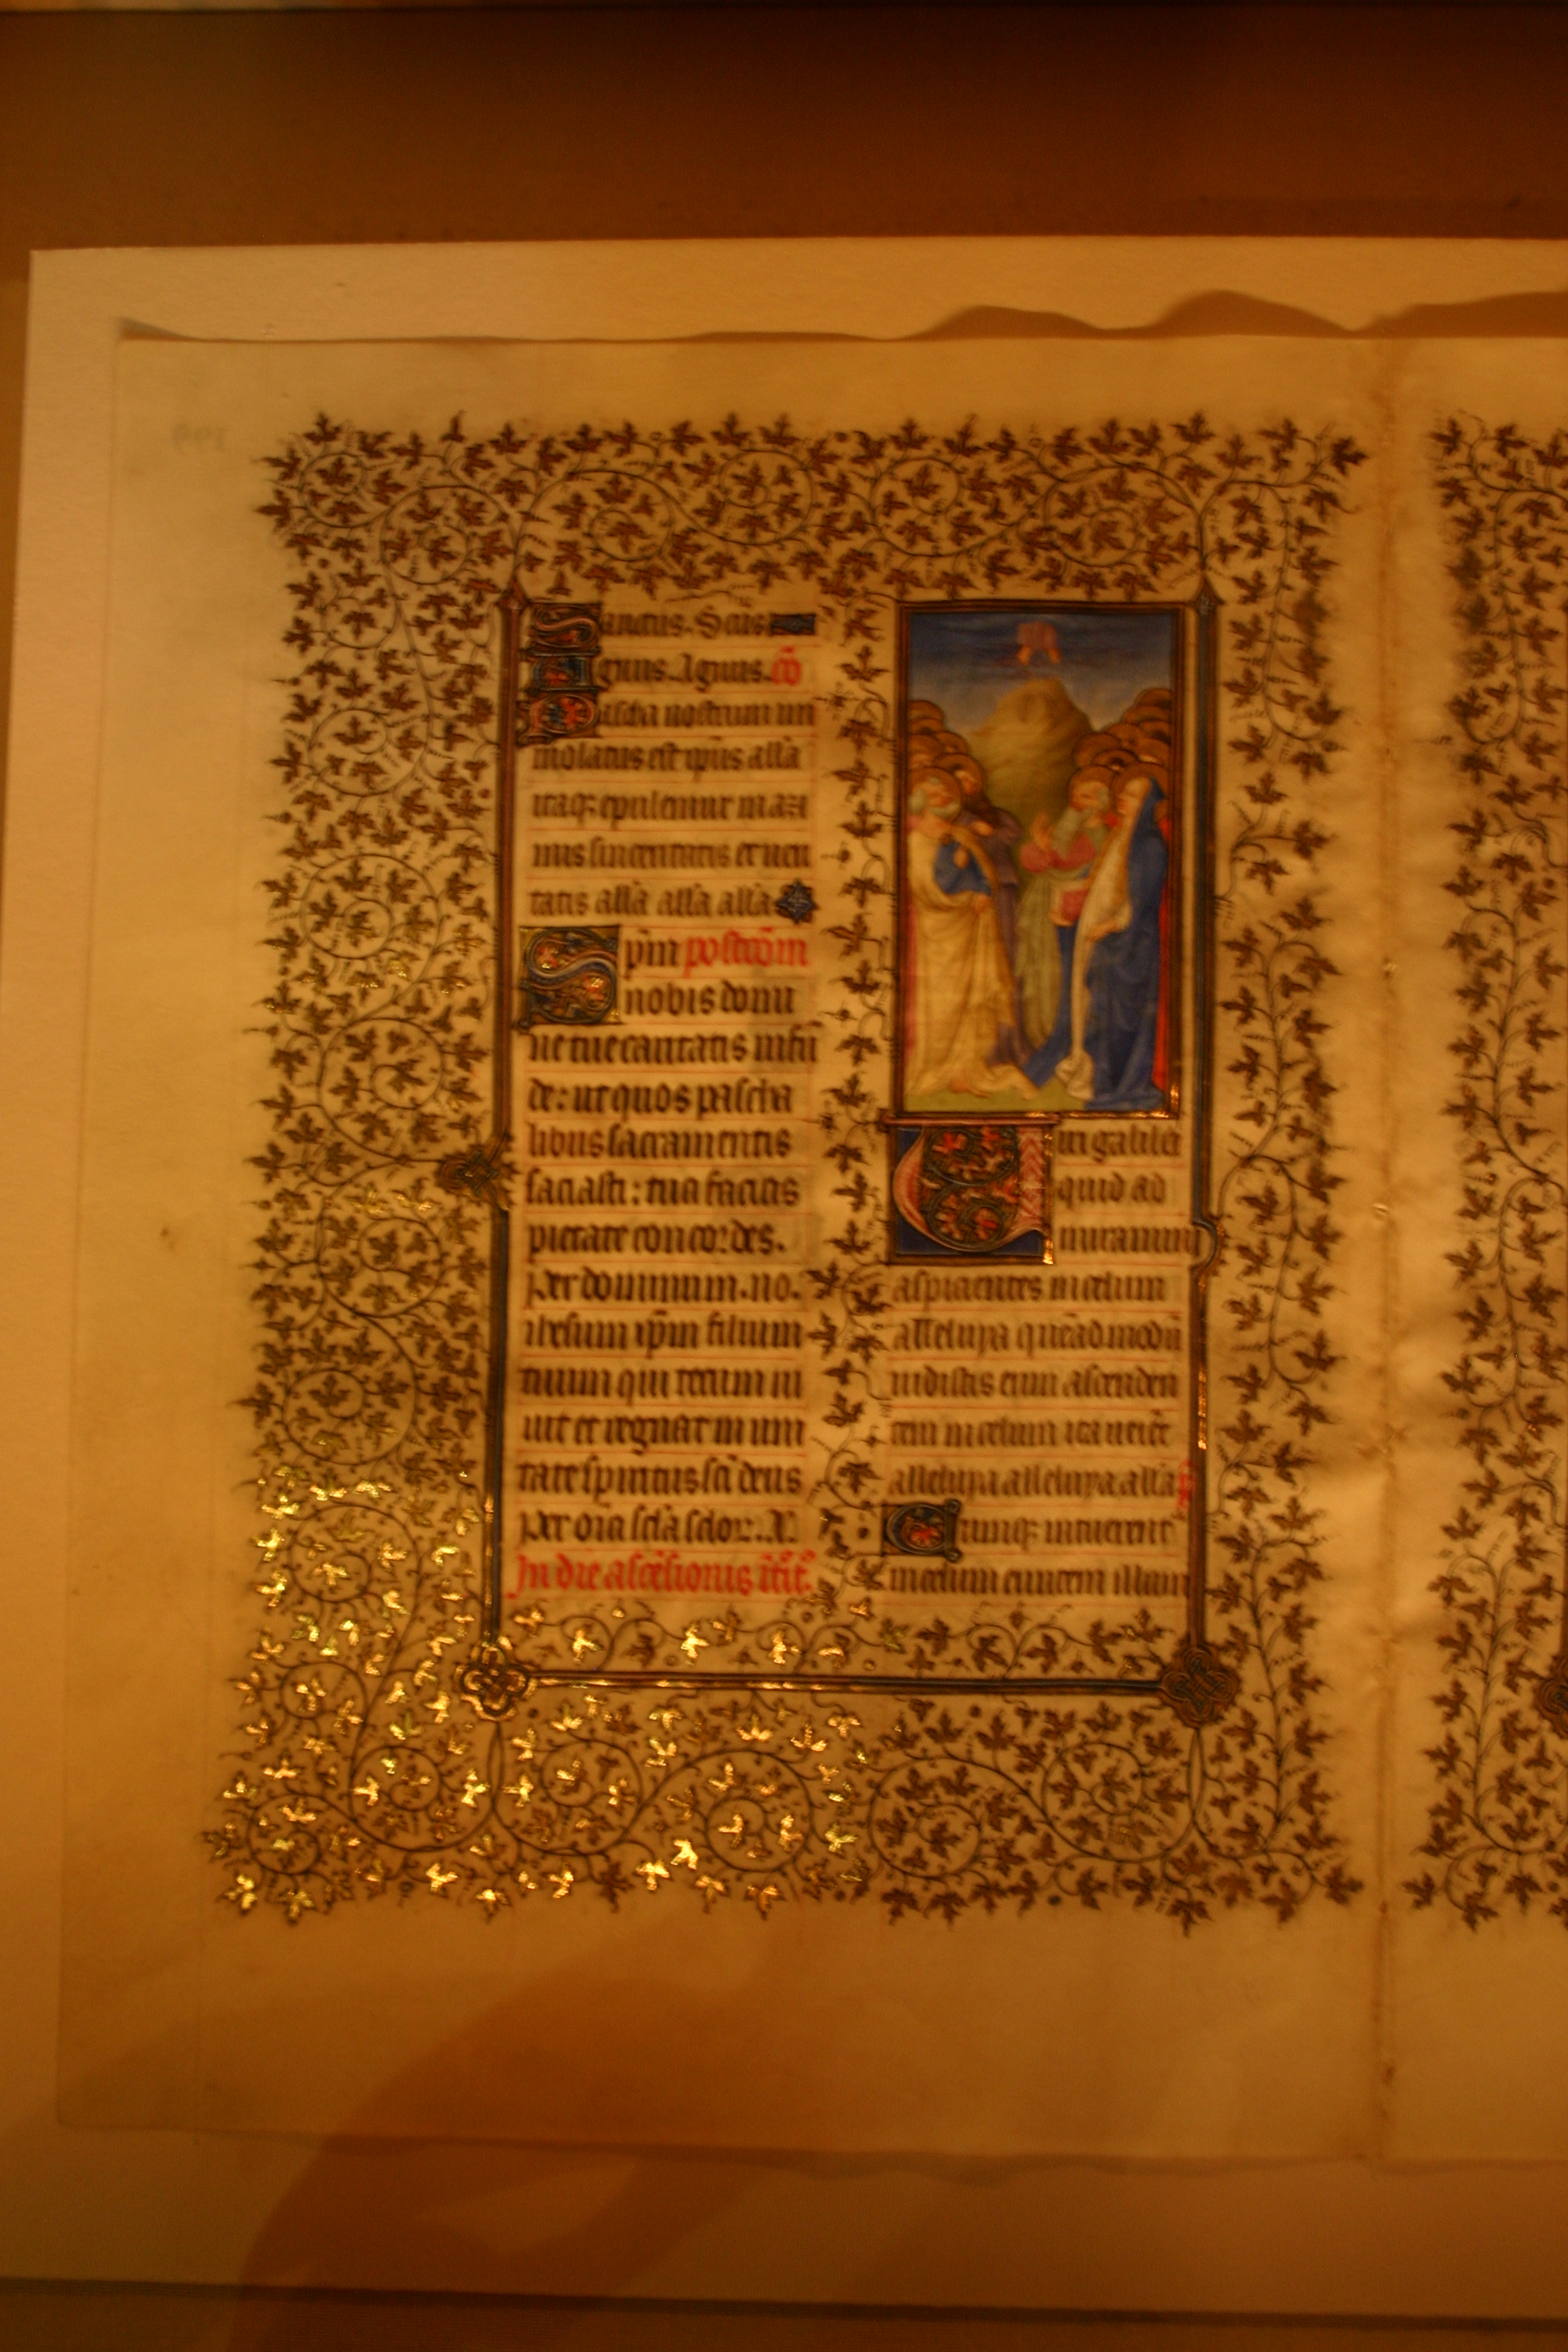 Sanctus. Scūs
Agnus. Agnus. cō
Pascha nostrum im
molatus est xp̄us all'a
itaq; epulemur in azi
mis sinceritatis et ueri
tatis all'a all'a all'a
Spm̄ postcōm
nobis domi
ne tue caritatis infū
de: ut quos pascha
libus sacramentis
saciasti: tua facias
pietate concordes.
Per dominum. no.
ihesum xp̄m filium
tuum qui tecum ui
uit et regnat in uni
tate spiritus sc̄i deus
per oīa sclā sclor..
In die ascēsionis
Viri galilei
quid ad
miramini
aspicientes in celum
alleluya quēadmodū
uidistis eum ascenden
tem in celum ita ueniet
alleluya alleluya all'a
Cumq; intuerent
in celum euntem illum